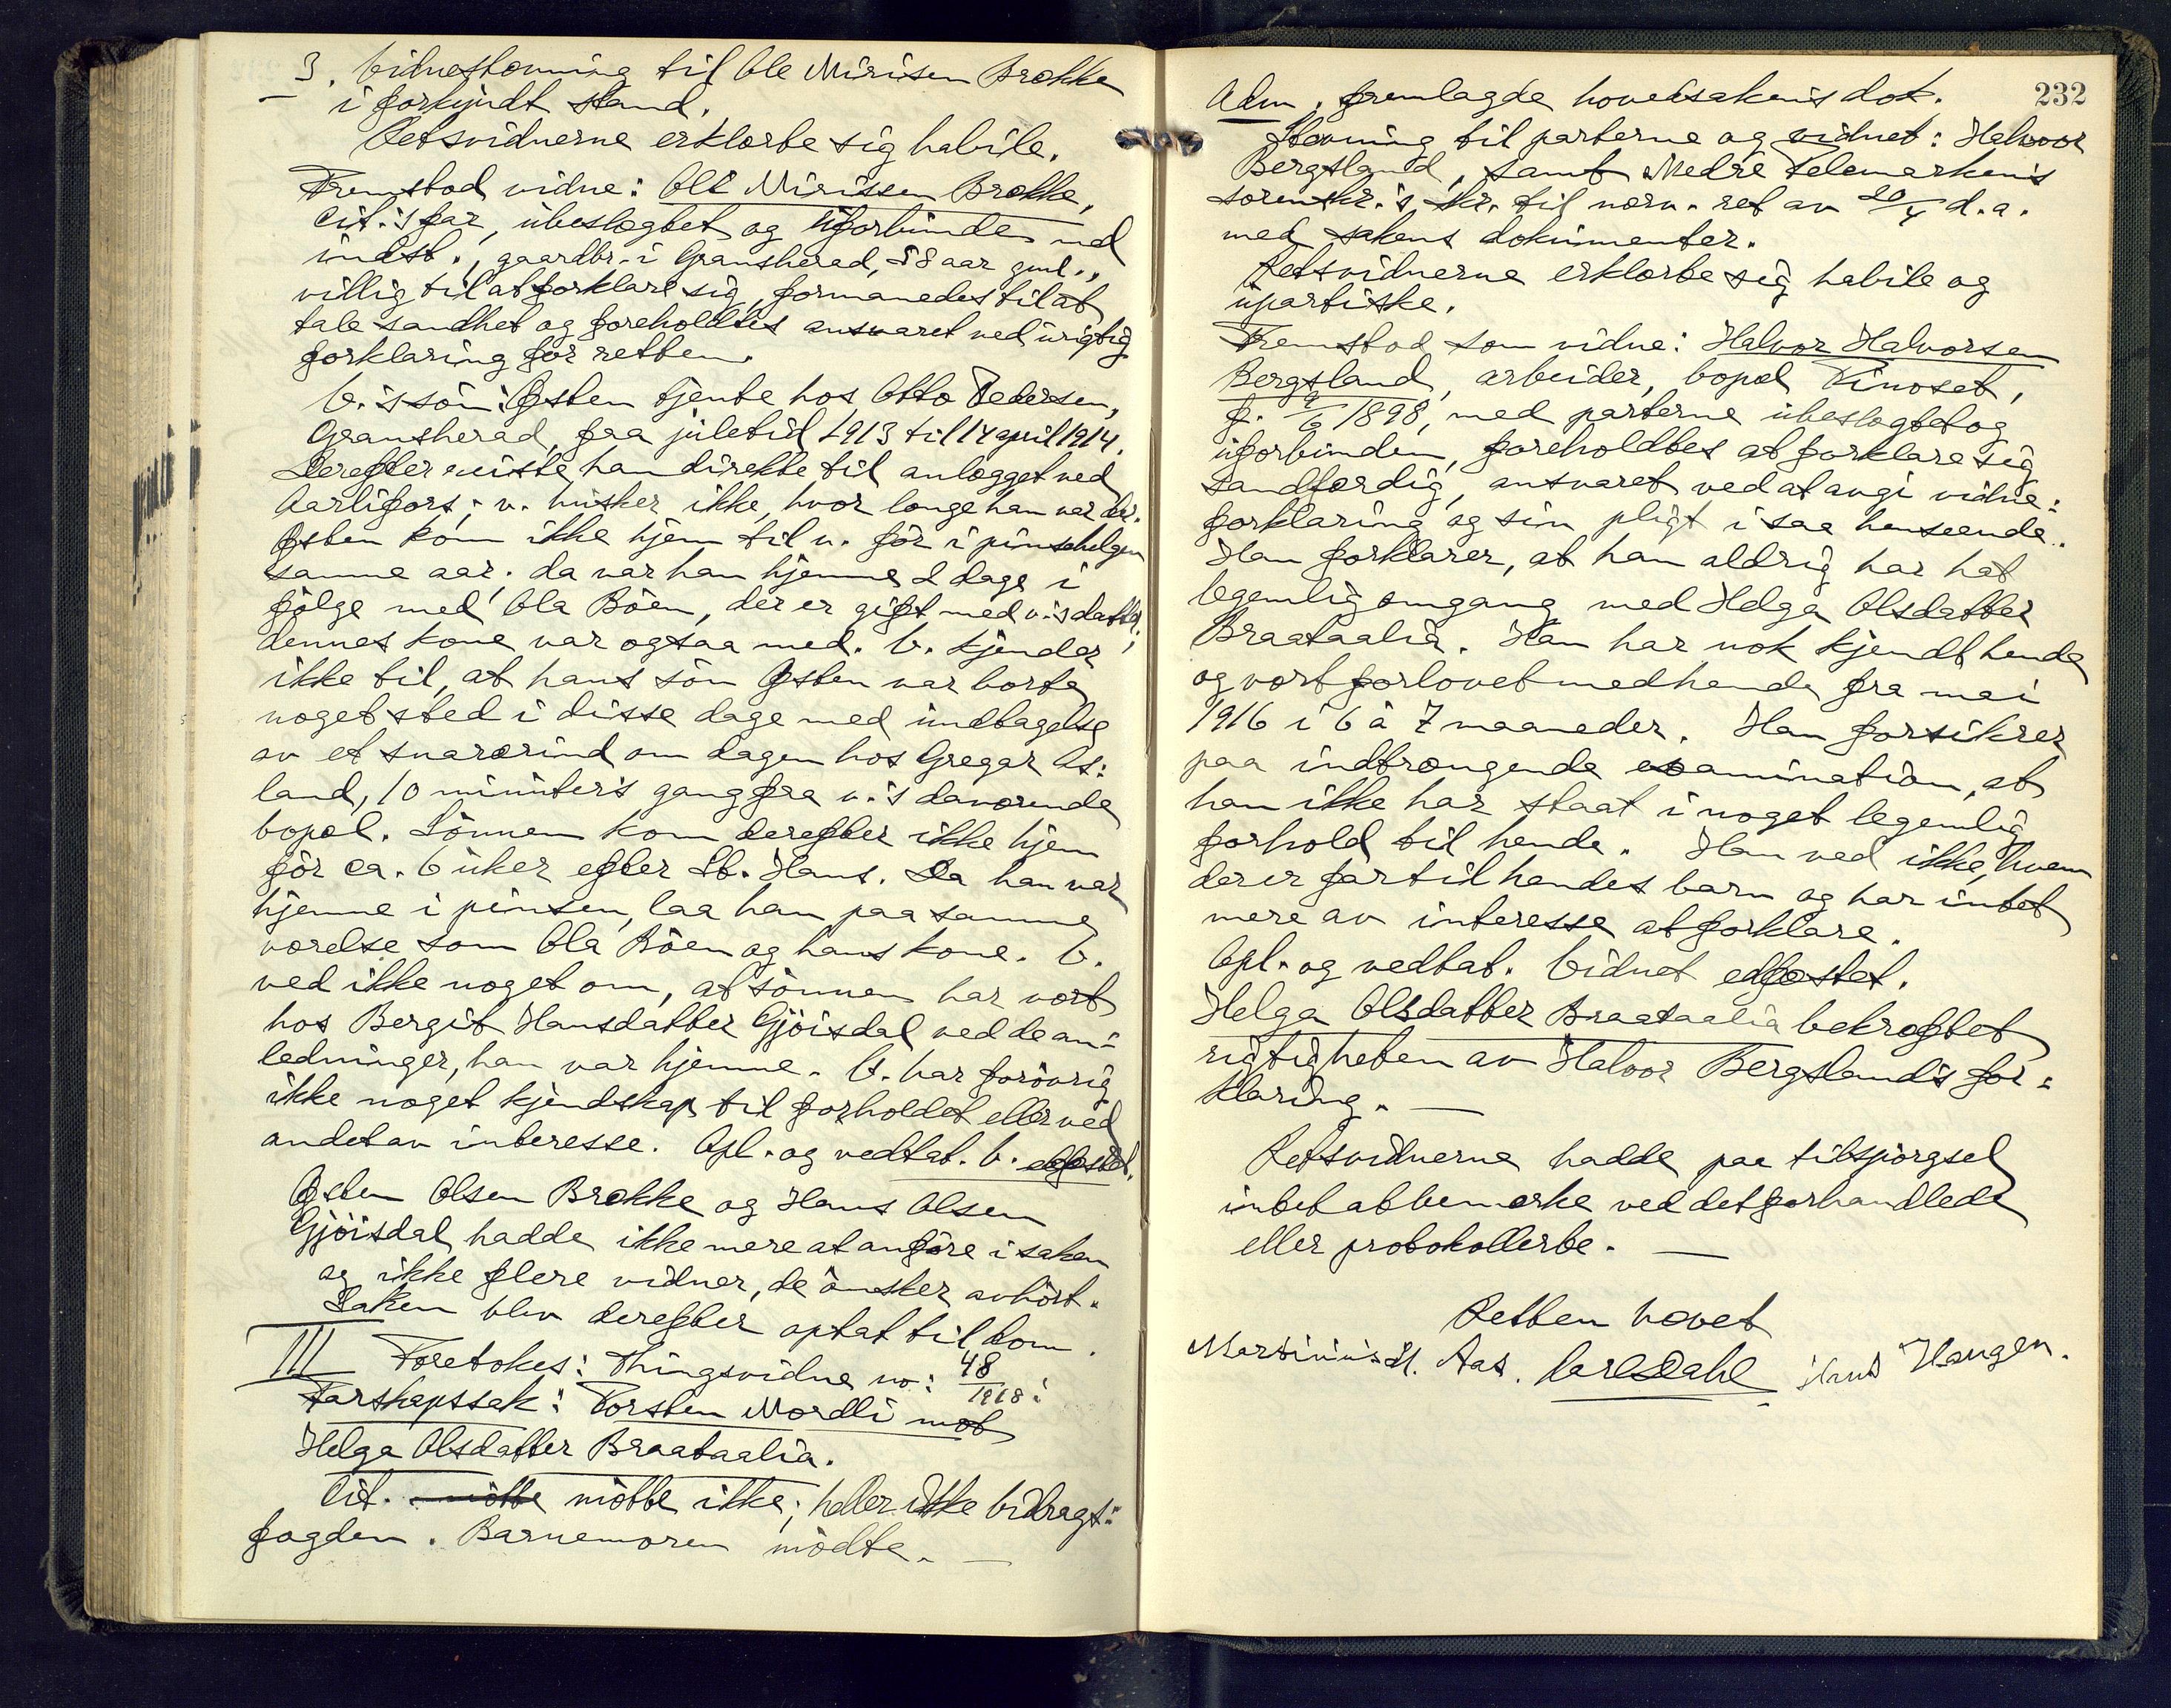 3. Vidnestevning til Ole Mirisen Brække
i forkyndt stand.
Retsvidnerne erklærte sig habile.
Fremstod vidne: Ole Mirissen Brække,
cit.'s far, ubeslegtet og uforbunden med
indst., gaardbr. i Gransherad, 58 aar gml.,
villig til at forklare sig, formanedes til at
tale sandhet og foreholdtes ansvaret ved urigtig
forklaring for retten.
V.'s søn: Østen tjente hos Otto Pedersen,
Gransherad, fra juletid 1913 til 14 april 1914.
Derefter reiste han direkte til anlægget ved
Aarlifoss; v. husker ikke, hvor længe han var der.
Østen kom ikke hjem til v. før i pinsehelgen
samme aar. da var han hjemme 2 dage i
følge med Ola Bøen, der er gift med v.'s datter;
dennes kone var ogsaa med. V. kjender
ikke til, at hans søn Østen var borte
noget sted i disse dage med undtagelse
av et snarærind om dagen hos Gregar As:
land, 10 minutter's gang fra v.'s daværende
bopæl. Sønnen kom derefter ikke hjem
før ca. 6 uker efter St. Hans. Da han var
hjemme i pinsen, laa han paa samme
værelse som Ola Bøen og hans kone. V.
ved ikke noget om, at sønnen har vært
hos Bergit Hansdatter Gjøisdal ved de an:
ledninger, han var hjemme. V. har forøvrig
ikke noget kjendskap til forholdet eller ved
andet av interesse. Opl. og vedtat. V. edfæstet.
Østen Olsen Brække og Hans Olsen
Gjøisdal hadde ikke mere at anføre i saken
og ikke flere vidner, de ønsker avhørt.
Saken blev derefter optat til dom.
III Foretokes: Thingsvidne no: 48/1918:
Farskapssak: Torsten Mærdli mot
Helga Olsdatter Braataalia.
Cit. møtte møtte ikke; heller ikke bidrags:
fogden. Barnemoren mødte. —
232
Adm. fremlagde hovedsakens dok.
Stevning til parterne og vidnet: Halvor
Bergsland, samt Nedre Telemarkens
sorenskr.'s skr. til nærv. ret av 20/4 d.a.
med sakens dokumenter.
Retsvidnerne erklærte sig habile og
upartiske.
Fremstod som vidne: Halvor Halvorsen
Bergsland, arbeider, bopæl Tinoset,
f. 9/6 1898, med parterne ubeslegtet og
uforbunden, foreholdtes at forklare sig
sandfærdig, ansvaret ved at avgi vidne:
forklaring og sin pligt i saa henseende.
Han forklarer, at han aldrig har hat
legemlig omgang med Helga Olsdatter
Braataalia. Han har nok kjendt hende
og vært forlovet med hende fra mai
1916 i 6 à 7 maaneder. Han forsikrer
paa indtrængende examination, at
han ikke har staat i noget legemlig
forhold til hende. Han ved ikke, hvem
der er far til hendes barn og har intet
mere av interesse at forklare.
Opl. og vedtat. Vidnet edfæstet.
Helga Olsdatter Braataalia bekræftet
rigtigheten av Halvor Bergsland's for:
klaring. —
Retsvidnerne hadde paa tilspørgsel
intet at bemerke ved det forhandlede
eller protokollerte. —
Retten hævet
Martinius H. Aas. Carl Dahl Hans Haugen.